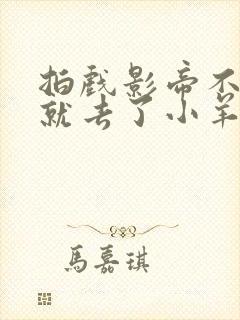 拍戏影帝不
就去了小羊
馬嘉琪